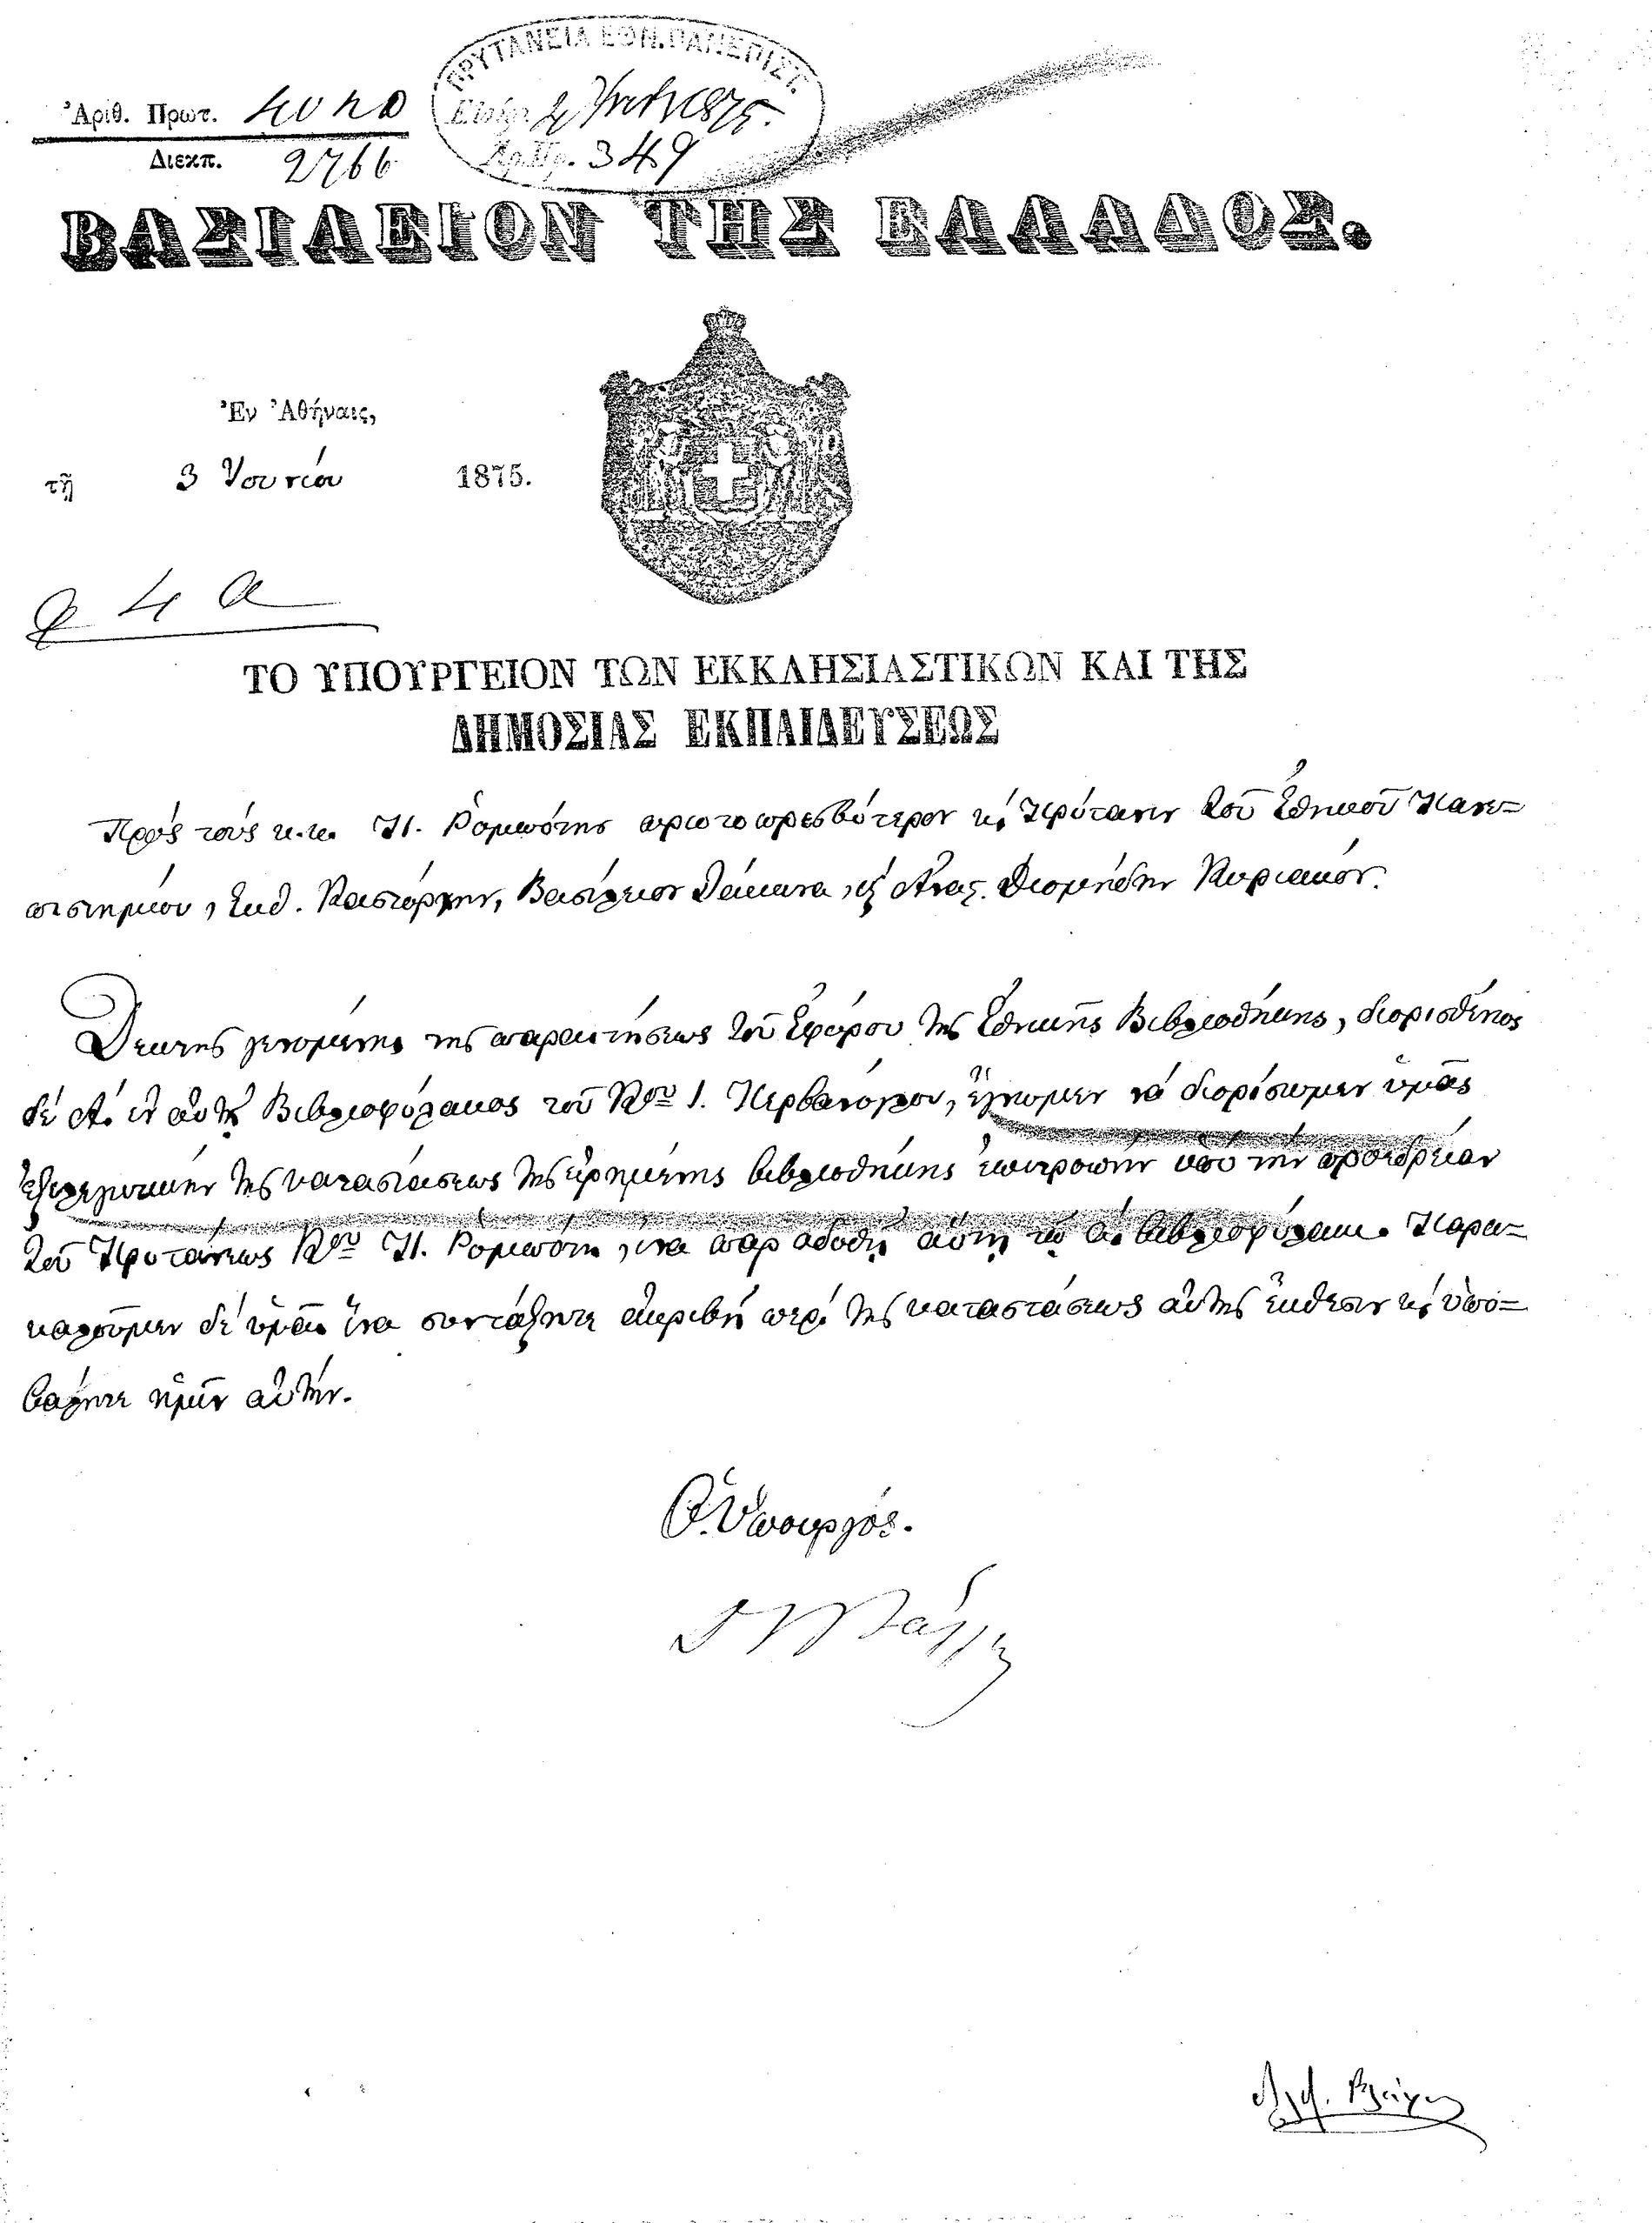 ΠΡΥΤΑΝΕΙΑ ΕΘΝ. ΠΑΝΕΠΙΣΤ.
Ἀριθ. Πρωτ.
1875.
Ἀρ. Πρ. 349
Διεκπ. 2766
ΒΑΣΙΛΕΙΟΝ ΤΗΣ ΕΛΛΑΔΟΣ.
Ἐν Ἀθήναις,
τῇ 3 Ἰουνίου 1875.
ΤΟ ΥΠΟΥΡΓΕΙΟΝ ΤΩΝ ΕΚΚΛΗΣΙΑΣΤΙΚΩΝ ΚΑΙ ΤΗΣ
ΔΗΜΟΣΙΑΣ ΕΚΠΑΙΔΕΥΣΕΩΣ
Πρός τούς κ.κ. Π. Ῥομπότην πρωτοπρεσβύτερον κ. Πρύτανιν τοῦ Ἐθνικοῦ Πανε=
πιστημίου, Εὐθ. Καστόρχην, Βασίλειον Λάκωνα, κ. Ἀνας. Διομήδην Κυριακόν.
Δεκτῆς γενομένης τῆς παραιτήσεως τοῦ Ἐφόρου τῆς Ἐθνικῆς Βιβλιοθήκης, διορισθέντος
δέ Α. ἐν αὐτῇ Βιβλιοφύλακος τοῦ Κου Ι. Περβάνογλου, ἔγνωμεν νά διορίσωμεν ὑμᾶς
ἐξελεγκτικήν τῆς καταστάσεως τῆς εἰρημένης βιβλιοθήκης ἐπιτροπήν ὑπό τήν προεδρείαν
τοῦ Πρυτάνεως Κου Π. Ῥομπότη, ἵνα παραδοθῇ αὕτη τῷ Α. βιβλιοφύλακι. Παρα=
καλοῦμεν δέ ὑμᾶς ἵνα συντάξητε ἀκριβῆ περί τῆς καταστάσεως αὐτῆς ἔκθεσιν κ. ὑπο=
βάλητε ἡμῖν αὐτήν.
Ὁ Ὑπουργός.